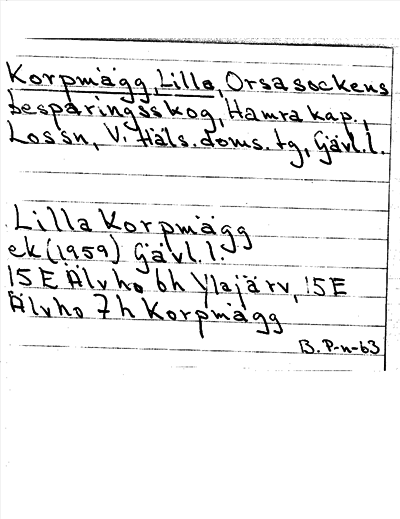 Korpmägg, Lilla, Orsa sockens
besparingsskog, Hamra kap.,
Lossn, V. Häls. doms. tg, Gävl.l.
Lilla Korpmägg
ek (1959) Gävl.l.
15E Älvho 6h Ylajärv, 15E
Älvho 7h Korpmägg
B. P-n-63